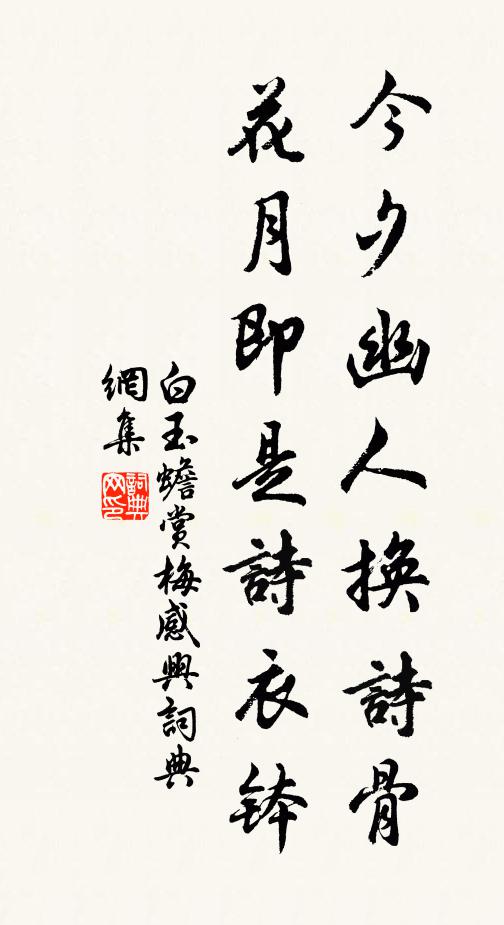 今夕幽人換詩骨
花月即是詩衣鉢
白玉蟾賞梅感興詞典
網集
詞典网印